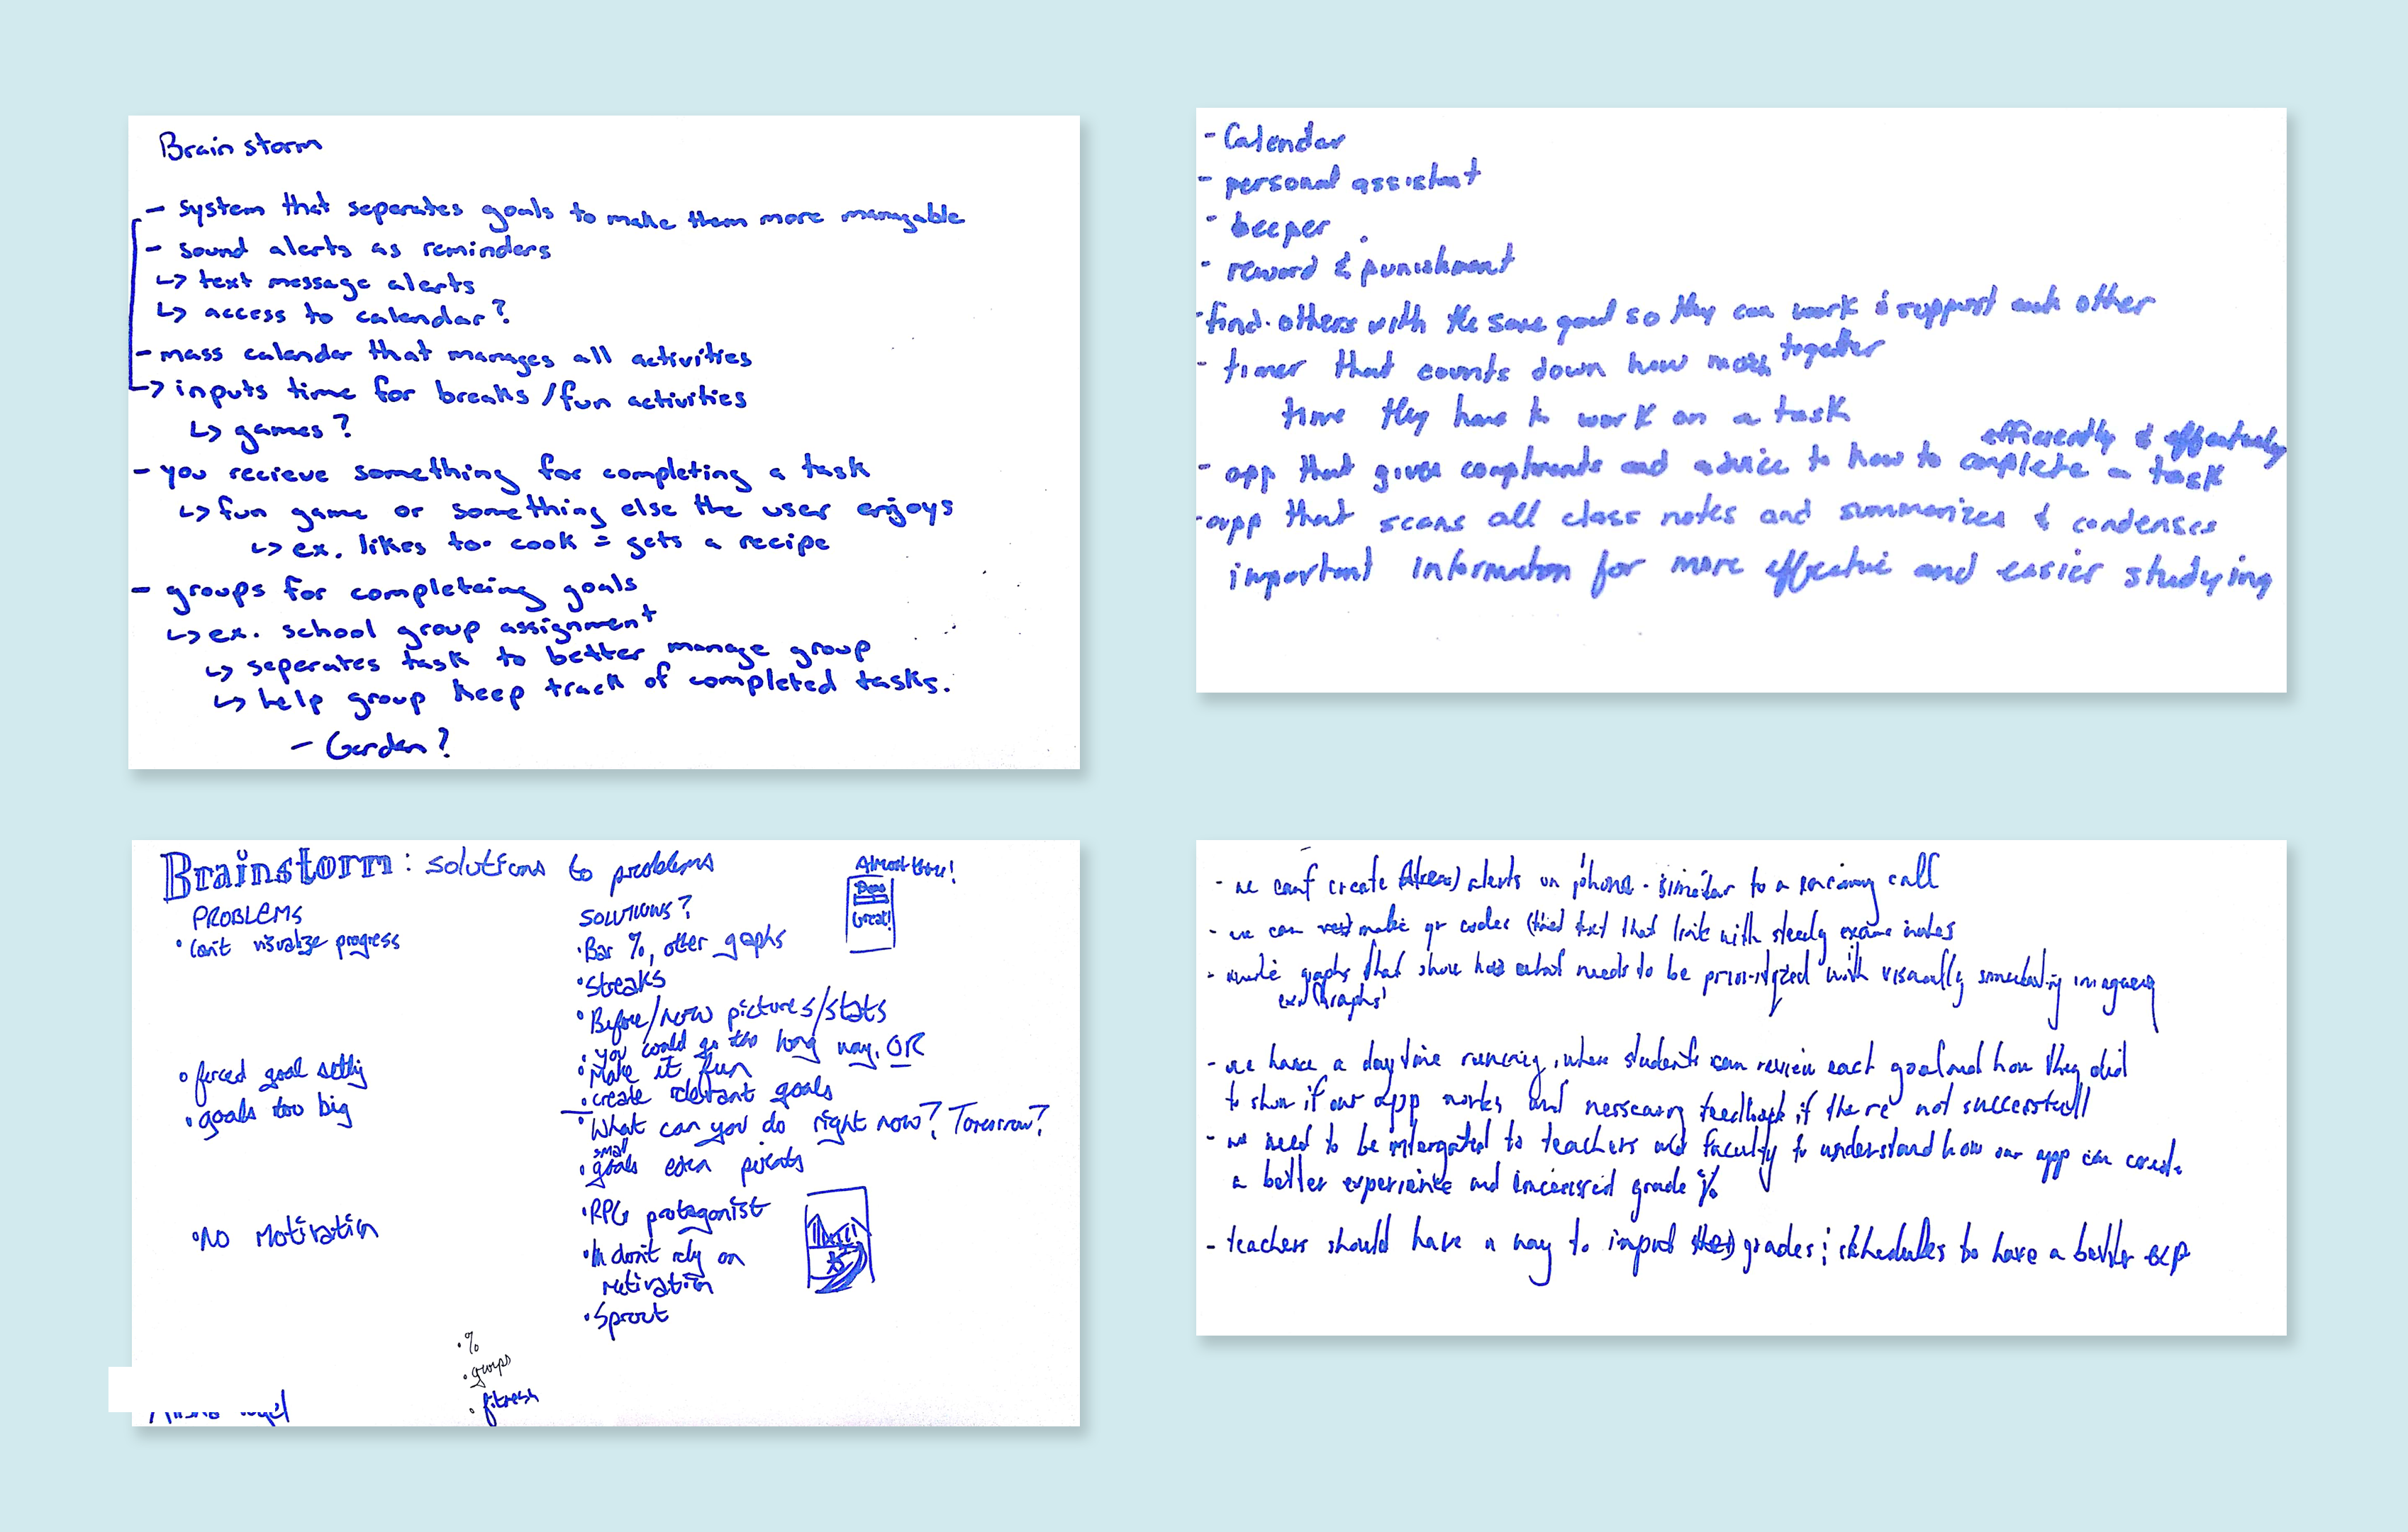 Brainstorm
- system that seperates goals to make them more managable
- sound alerts as reminders
↳ text message alerts
↳ access to calendar?
- mass calendar that manages all activities
↳ inputs time for breaks/fun activities
↳ games?
- you recieve something for completing a task
↳ fun game or something else the user enjoys
↳ ex. likes to cook = gets a recipe
- groups for completeing goals
↳ ex. school group assignment
↳ seperates task to better manage group
↳ help group keep track of completed tasks.
- Garden?
- Calendar
- personal assistant
- beeper
- reward & punishment
- find others with the same goal so they can work & support each other
together
- timer that counts down how much
time they have to work on a task
efficiently & effectively
- app that gives compliments and advice to how to complete a task
- app that scans all class notes and summarizes & condenses
important information for more effective and easier studying
Brainstorm: solutions to problems
Almost there!
Great!
PROBLEMS
• Can't visualize progress
• forced goal setting
• goals too big
• No Motivation
SOLUTIONS?
• Bar %, other graphs
• Streaks
• Before/now pictures/stats
• You could go the long way, OR
• Make it fun
• create relevant goals
• What can you do right now? Tomorrow?
small
• goals even
• RPG protagonist
• don't rely on
motivation
• Sprout
• %
• groups
• fitness
- we create alerts on phone - similar to a call
- we can make qr codes text that link with study exam notes
- graphs that show what needs to be prioritized with visually imagery
ex. Graphs
- we have a day time running, where students can review each goal and how they did
to show if our app works and feedback if there not successfull
- we need to be to teachers and faculty to understand how our app can create
a better experience and grade %
- teachers should have a way to input grades; schedules to have a better